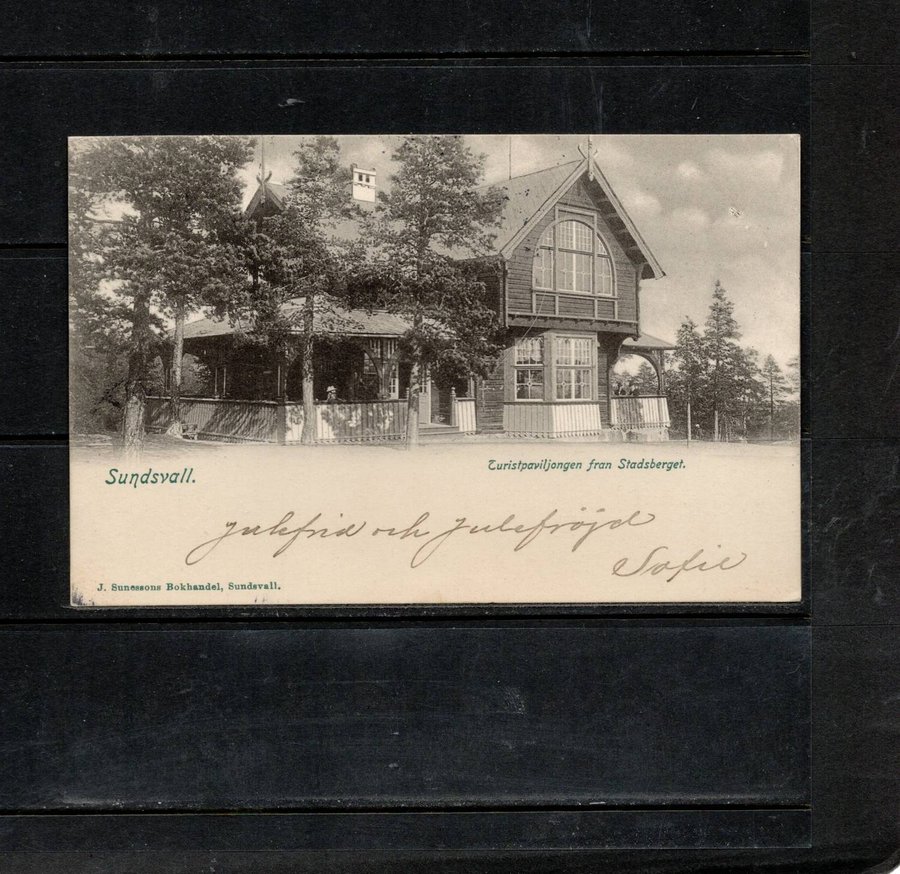 Sundsvall.
Turistpaviljongen fran Stadsberget.
Julefrid och Julefröjd
Sofie
J. Sunessons Bokhandel, Sundsvall.